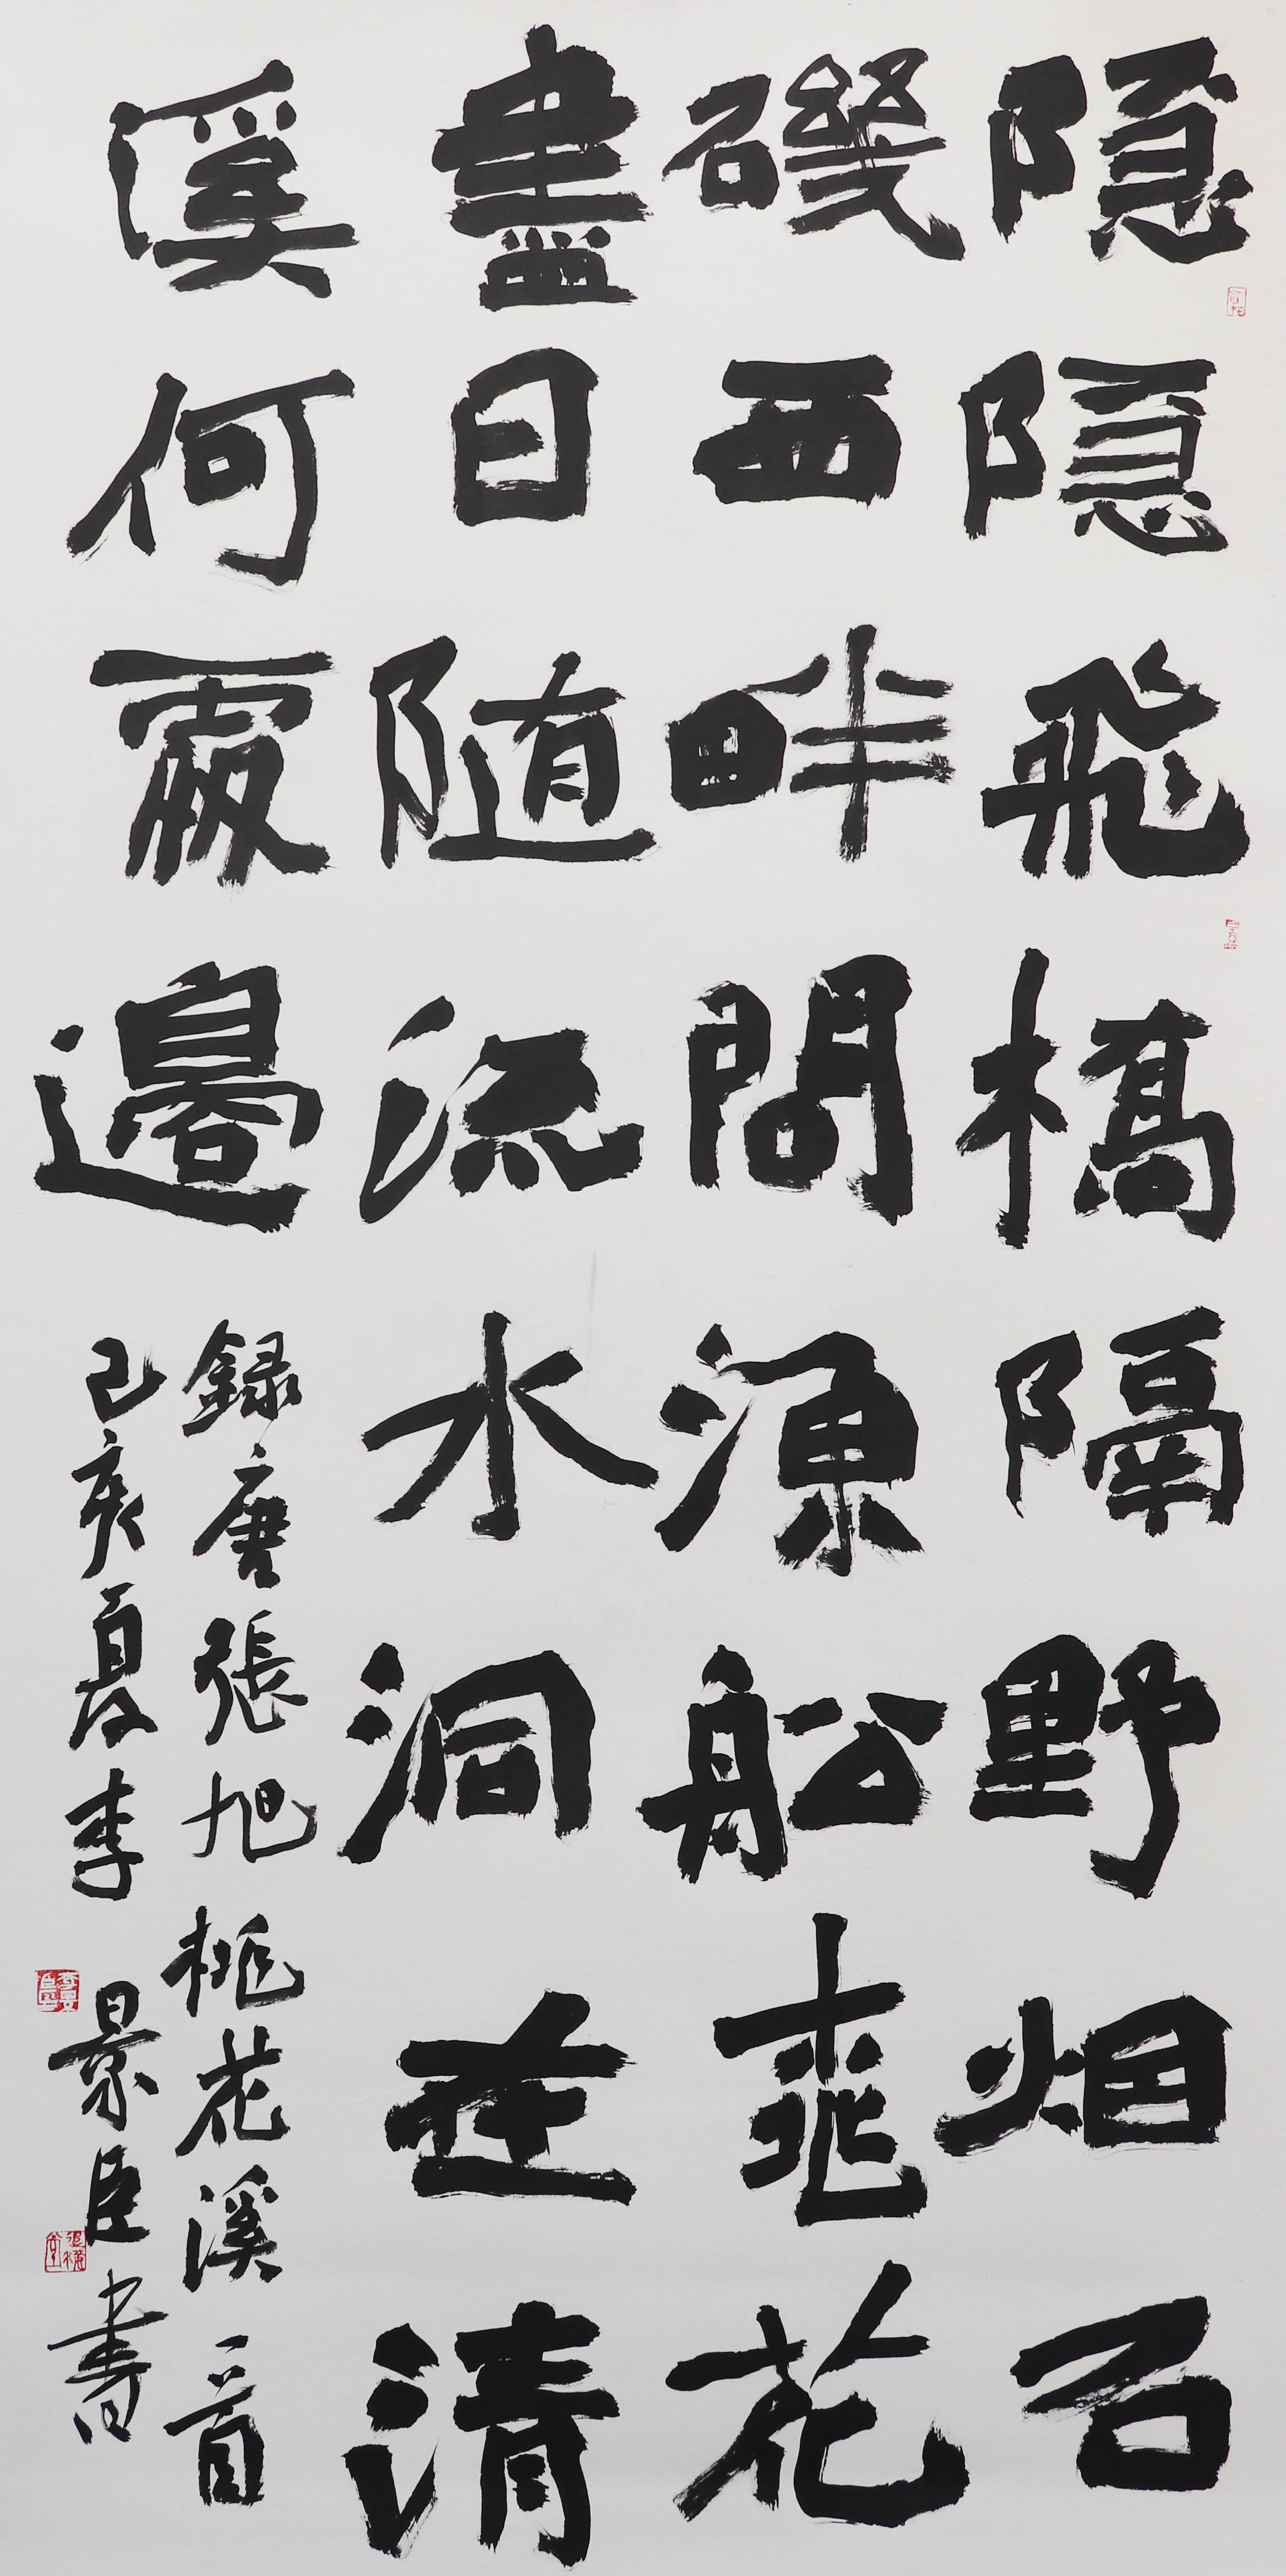 隐隐飛橋隔野烟石
磯西畔問漁船桃花
盡日随流水洞在清
溪何處邊
録唐張旭桃花溪一首
己亥夏李景臣書